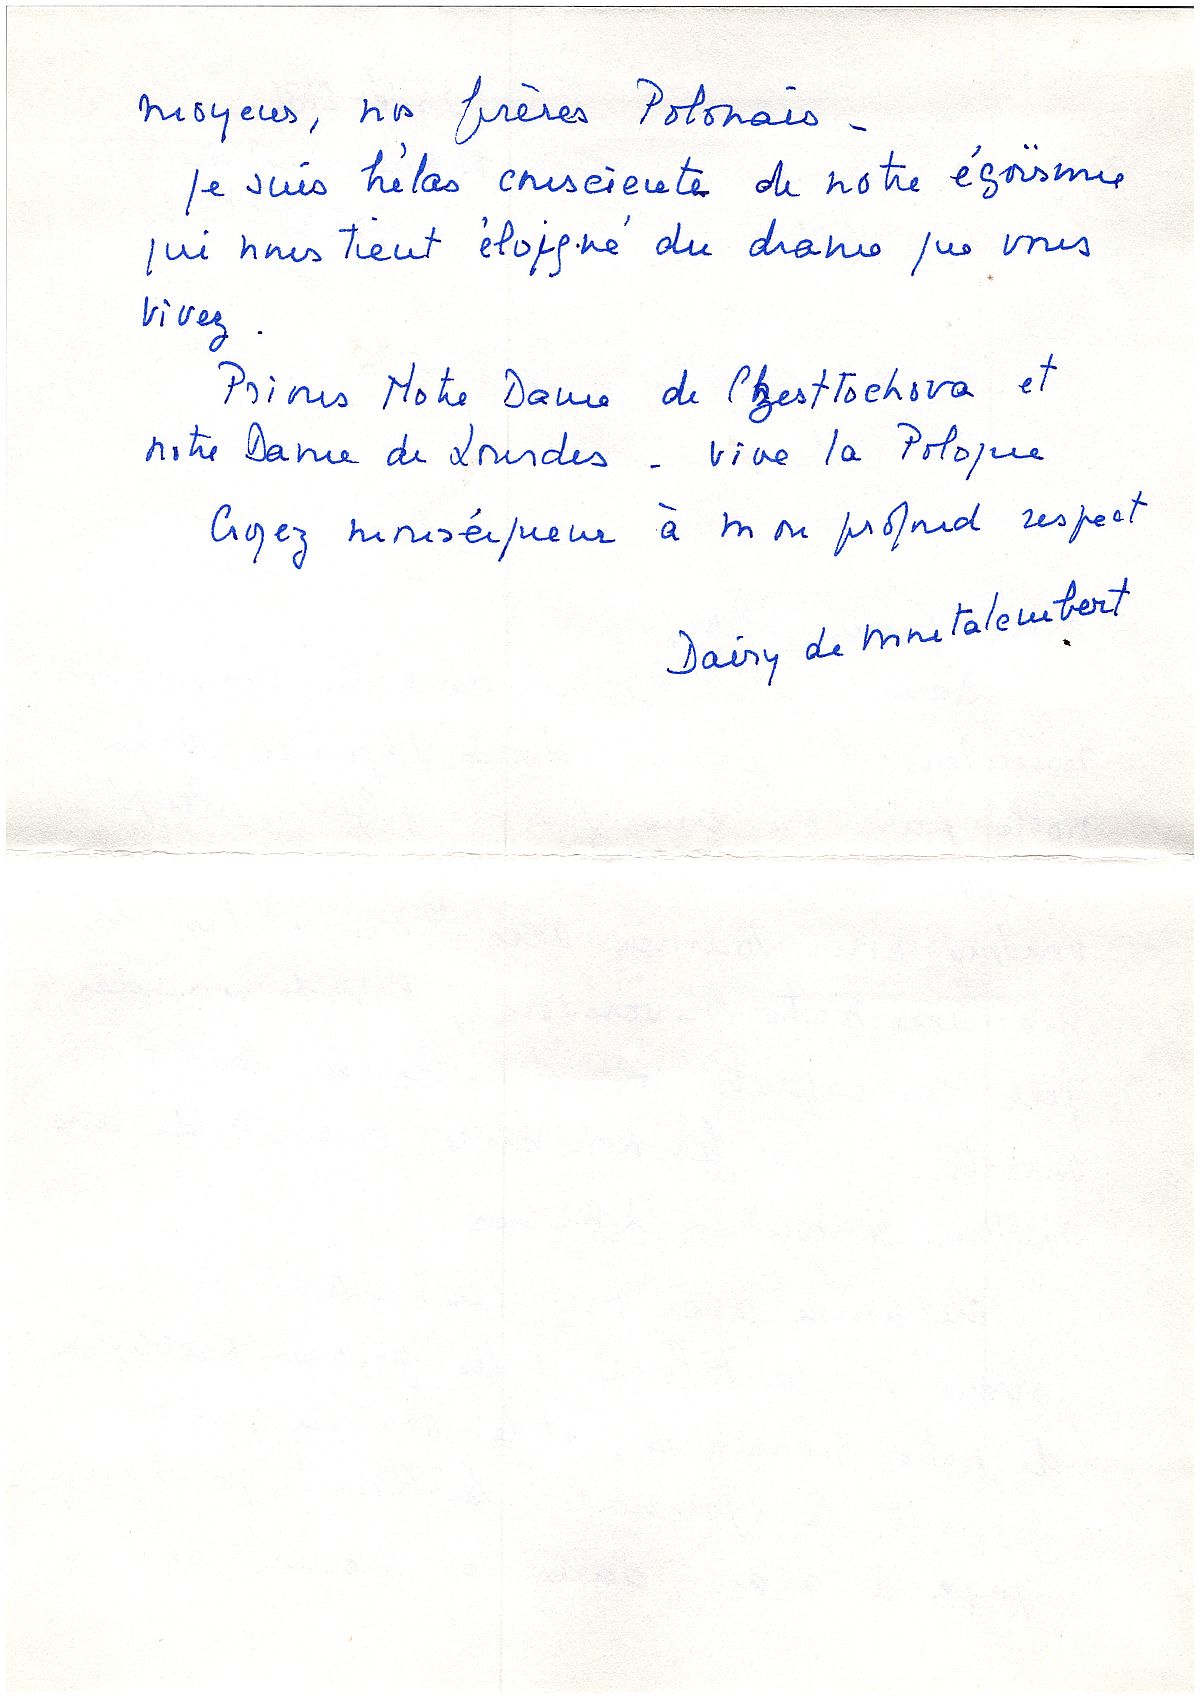 moyens, nos frères Polonais -
Je suis hélas consciente de notre égoïsme
qui nous tient éloigné du drame que vous
vivez.
Prions Notre Dame de Chzesttochova et
notre Dame de Lourdes - vive la Pologne
Croyez monseigneur à mon profond respect
Daisy de Montalembert